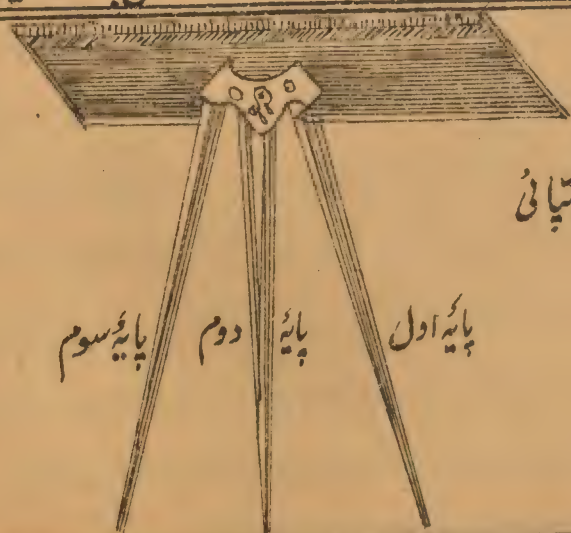 تپائی
پایۂ اول
پایۂ دوم
پایۂ سوم